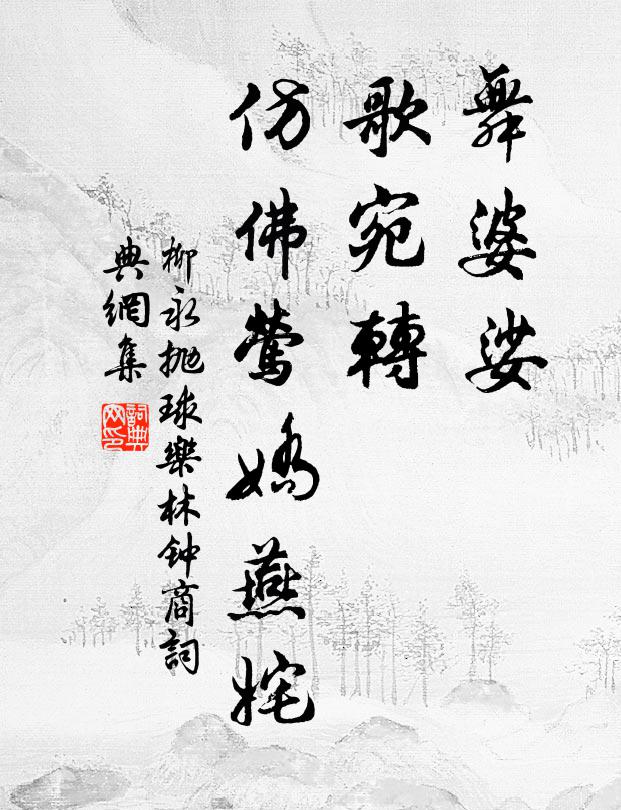 舞婆娑
歌宛轉
仿佛鶯嬌燕姹
柳永拋球樂林钟商詞
典網集
詞典
网印